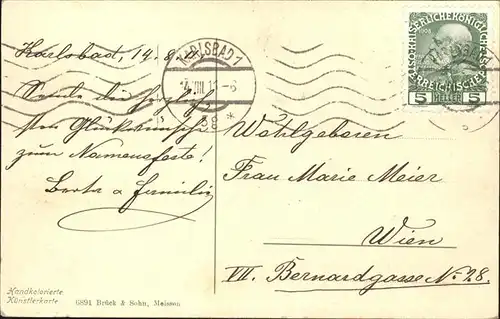 Karlsbad, 14. 8.
Sende die herzlich-
sten Glückwünsche
zum Namensfeste!
Berta & Familie
KARLSBAD 1
1908
KAISERLICHE KÖNIGLICHE
ÖSTERREICHISCHE
5 HELLER 5
Wohlgeboren
Frau Marie Meier
Wien
VII. Bernardgasse No. 28.
Handkolorierte
Künstlerkarte
6891 Brück & Sohn, Meissen